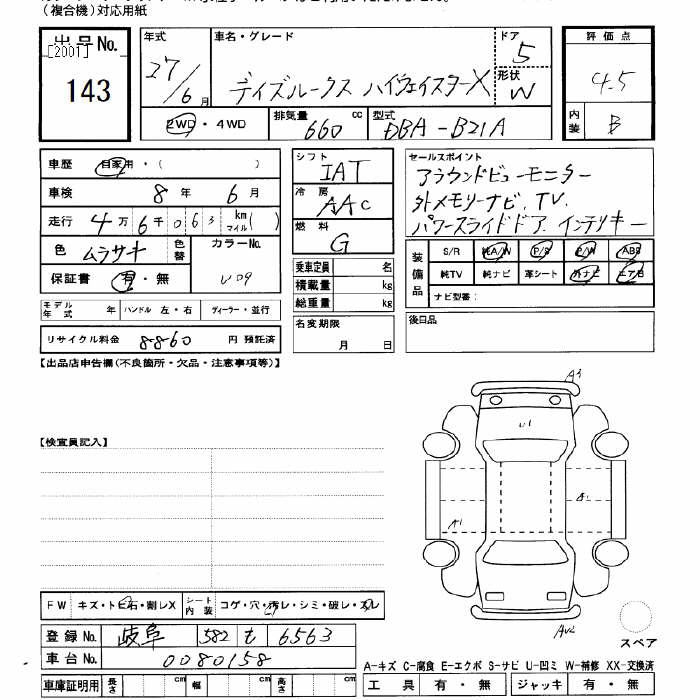 (複合機)対応用紙
出品No.
[2001]
143
年式
27/6月
車名・グレード
デイズルークス ハイウェイスターX
ドア
5
形状
W
2WD・4WD
排気量
660 cc
型式
DBA-B21A
評価点
4.5
内装
B
車歴 自家用・( )
車検 8年 6月
走行 4万6千063 km マイル( )
色 ムラサキ 色替
カラーNo.
保証書 有・無
モデル年式 年 ハンドル 左・右 ディーラー・並行
リサイクル料金 8860 円 預託済
シフト
IAT
冷房
AAC
燃料
G
乗車定員 名
積載量 kg
総重量 kg
名変期限
月 日
セールスポイント
アラウンドビューモニター
外メモリーナビ、TV、
パワースライドドア、インテリキー
装備品
S/R 純A/W P/S P/W ABS
純TV 純ナビ 革シート 外ナビ エアB
ナビ型番:
後日品
【出品店申告欄(不良箇所・欠品・注意事項等)】
【検査員記入】
A3
U1
A1
FW キズ・トビ石・割レX シート内装 コゲ・穴・汚レ・シミ・破レ・スレ
登録No. 岐阜 582 せ 6563
車台No. 0080158
車庫証明用 長さ cm 幅 cm 高さ cm
スペア
A-キズ C-腐食 E-エクボ S-サビ U-凹ミ W-補修 XX-交換済
工具 有・無 ジャッキ 有・無